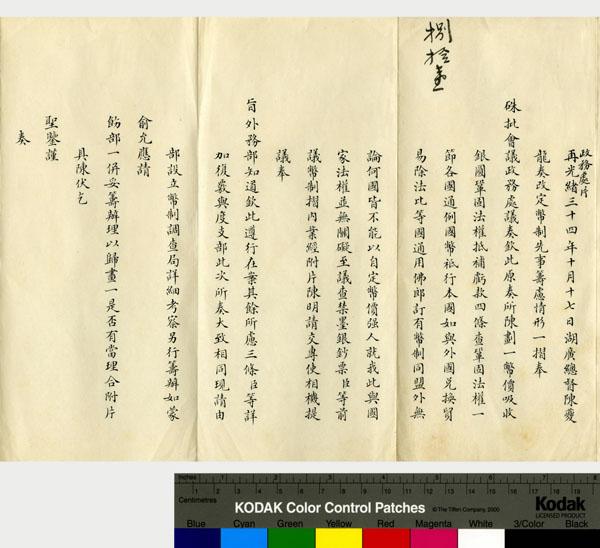 政務處片
再光緒三十四年十月十七日湖廣總督陳夔
龍奏改定幣制先事籌慮情形一摺奉
硃批會議政務處議奏欽此原奏所陳劃一幣價吸收
銀圓鞏固法權抵補虧款四條查鞏固法權一
節各國通例國幣祗行本國如與外國兌換貿
易除法比等國通用佛郎訂有幣制同盟外無
捌拾壹
論何國皆不能以自定幣價强人就我此與國
家法權並無關礙至議查禁墨銀鈔票臣等前
議幣制摺內業經附片陳明請交專使相機提
議奉
旨外務部知道欽此遵行在案其餘所慮三條臣等詳
加復覈與度支部此次所奏大致相同現請由
部設立幣制調查局詳細考察另行籌辦如蒙
俞允應請
飭部一併妥籌辦理以歸畫一是否有當理合附片
具陳伏乞
聖鑒謹
奏
inches 1 2 3 4 5 6 7 8
Centimetres
KODAK Color Control Patches
©The Tiffen Company, 2000
Kodak
LICENSED PRODUCT
Blue Cyan Green Yellow Red Magenta White 3/Color Black